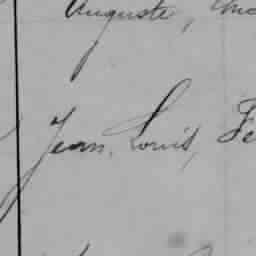 Auguste,
Jean, Louis,